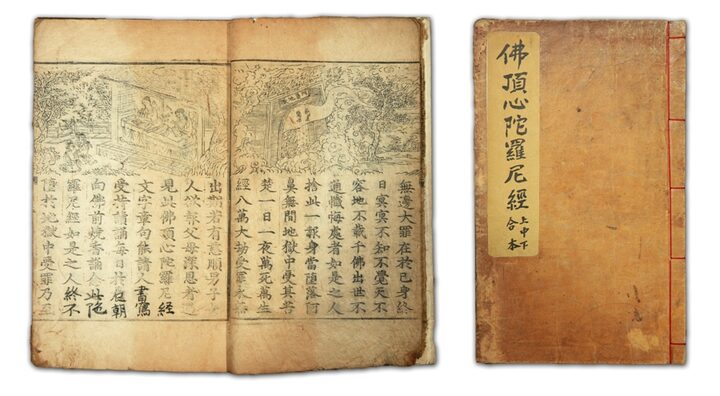 無邊大罪在於己身終
日冥冥不知不覺天不
容地不載千佛出世不
通懺悔處者如是之人
捨此一報身當墮落阿
鼻無間地獄中受其苦
楚一日一夜萬死萬生
經八萬大劫受罪永無
出期若有慈順男子女
人欲報父母深恩者遇
見此佛頂心陀羅尼經
文字章句能請人書寫
受持讀誦每日於朝
向佛前燒香誦念此陀
羅尼經如是之人終不
墮於地獄中受罪乃至
佛頂心陀羅尼經
上中下
合本